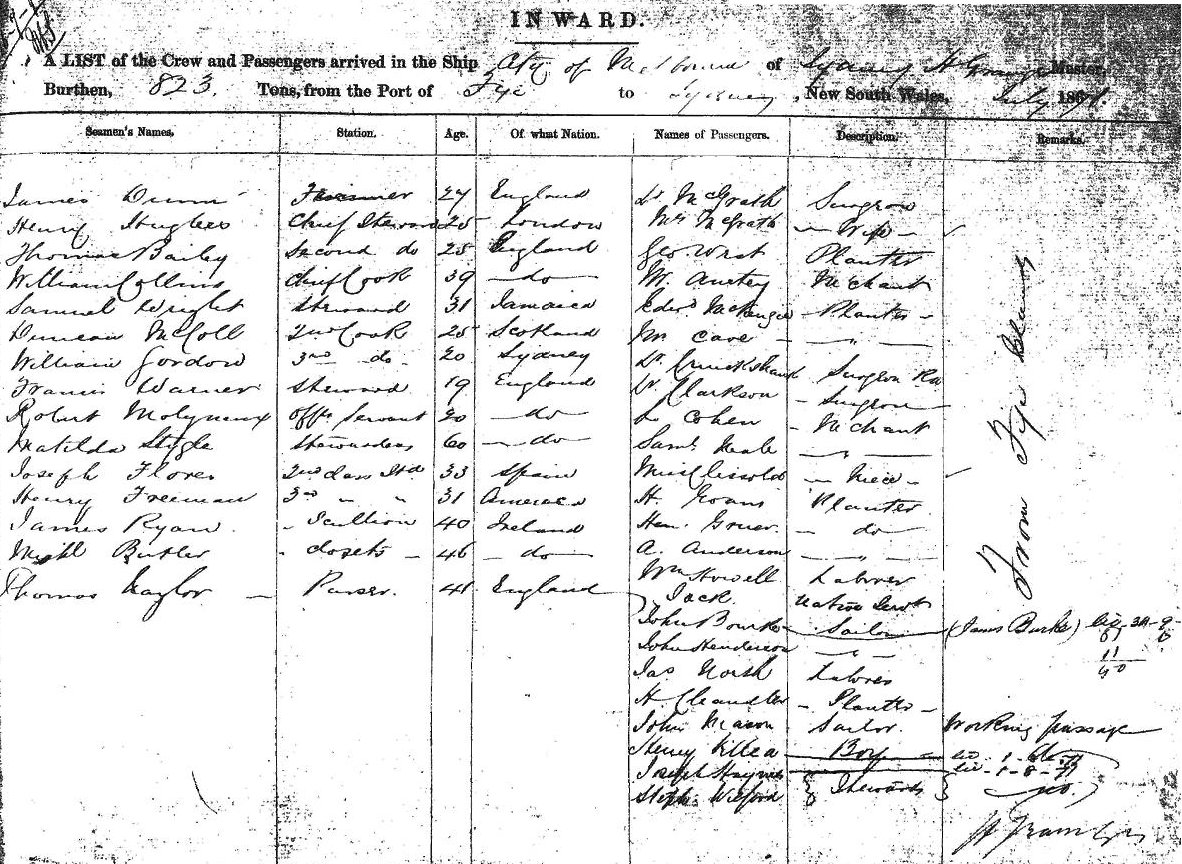 INWARD.
A LIST of the Crew and Passengers arrived in the Ship City of Melbourne of Sydney H Grainger Master,
Burthen, 823. Tons, from the Port of Fiji to Sydney, New South Wales, July 187
Seamen's Names, Station. Age. Of what Nation. Names of Passengers. Description. Remarks.
James Dunn Trimmer 27 England Dr McGrath Surgeon
Henry Hughes Chief Steward 25 London Mrs McGrath Wife
Thomas Bailey Second do 25 England Geo. West Planter
William Collins Chief Cook 39 do W. Anstey Mchant
Samuel Wright Steward 31 Jamaica Edwd McKenzie Planter
Duncan McColl 2nd Cook 25 Scotland Mr Cave "
William Gordon 3rd do 20 Sydney Dr Cruickshank Surgeon
Francis Warner Steward 19 England Dr Clarkson Surgeon
Robert Molyneux offs Servant 20 do Cohen Mchant
Matilda Stewardess 60 do Saml "
Joseph Flores 2nd Class Std 33 Spain Miss Niece
Henry Freeman 3rd " " 31 America H. Evans Planter
James Ryan Scullion 40 Ireland Hen. do
Michl Butler closets 46 do A. Anderson "
Thomas Naylor Purser. 41 England Wm Howell Laborer
Jack. Native Servt
John Bourke Sailor (James Burke)
John Henderson "
Jas North Laborer
H. Chandler Planter
John Mason Sailor. Working passage
Henry Boy
Joseph Haynes
Steph. Wilford Stewards do
From Fiji Islands